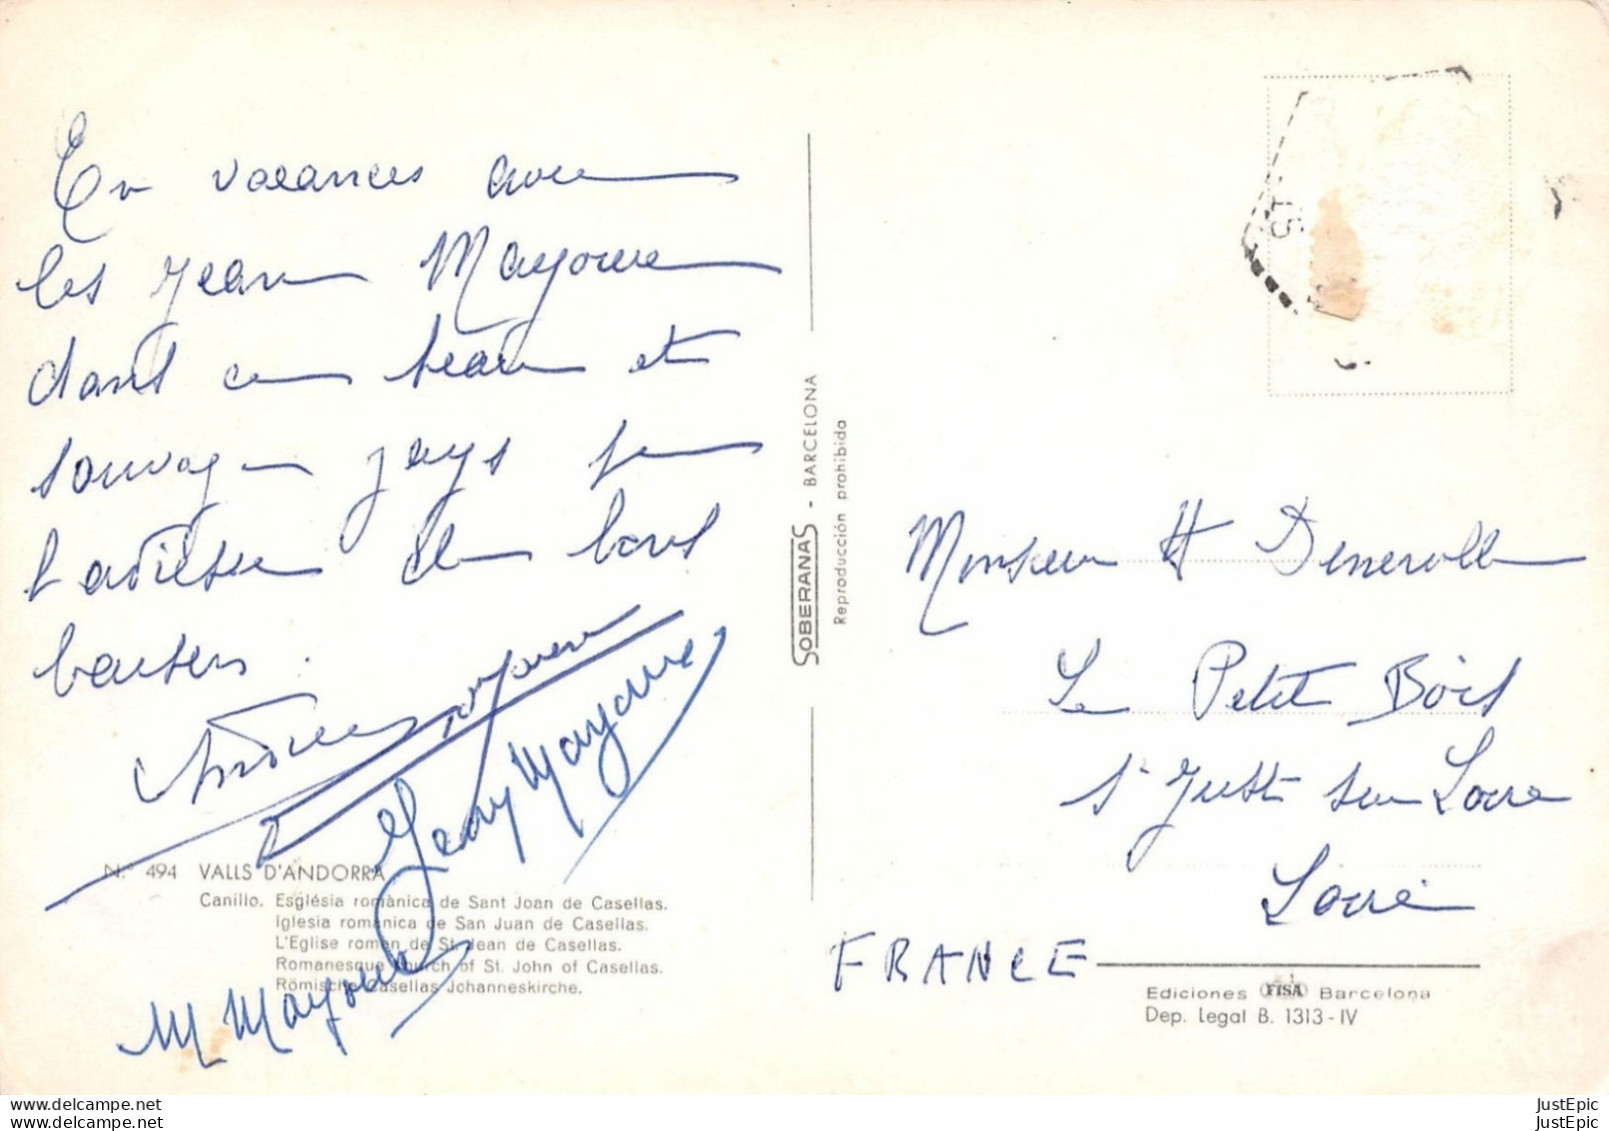 En vacances avec
les Jean Mayoux
dans ce beau et
sauvage pays je
t'adresse de bons
baisers.
Jean Mayoux
M Mayoux
N.° 494 VALLS D'ANDORRA
Canillo. Església romànica de Sant Joan de Casellas.
Iglesia románica de San Juan de Casellas.
L'Eglise roman de St. Jean de Casellas.
Romanesque church of St. John of Casellas.
Römische Casellas Johanneskirche.
SOBERANAS - BARCELONA
Reproducción prohibida
Monsieur H
Le Petit Bois
St Just sur Loire
Loire
FRANCE
Ediciones FISA Barcelona
Dep. legal B. 1313-IV
www.delcampe.net
www.delcampe.net
JustEpic
JustEpic